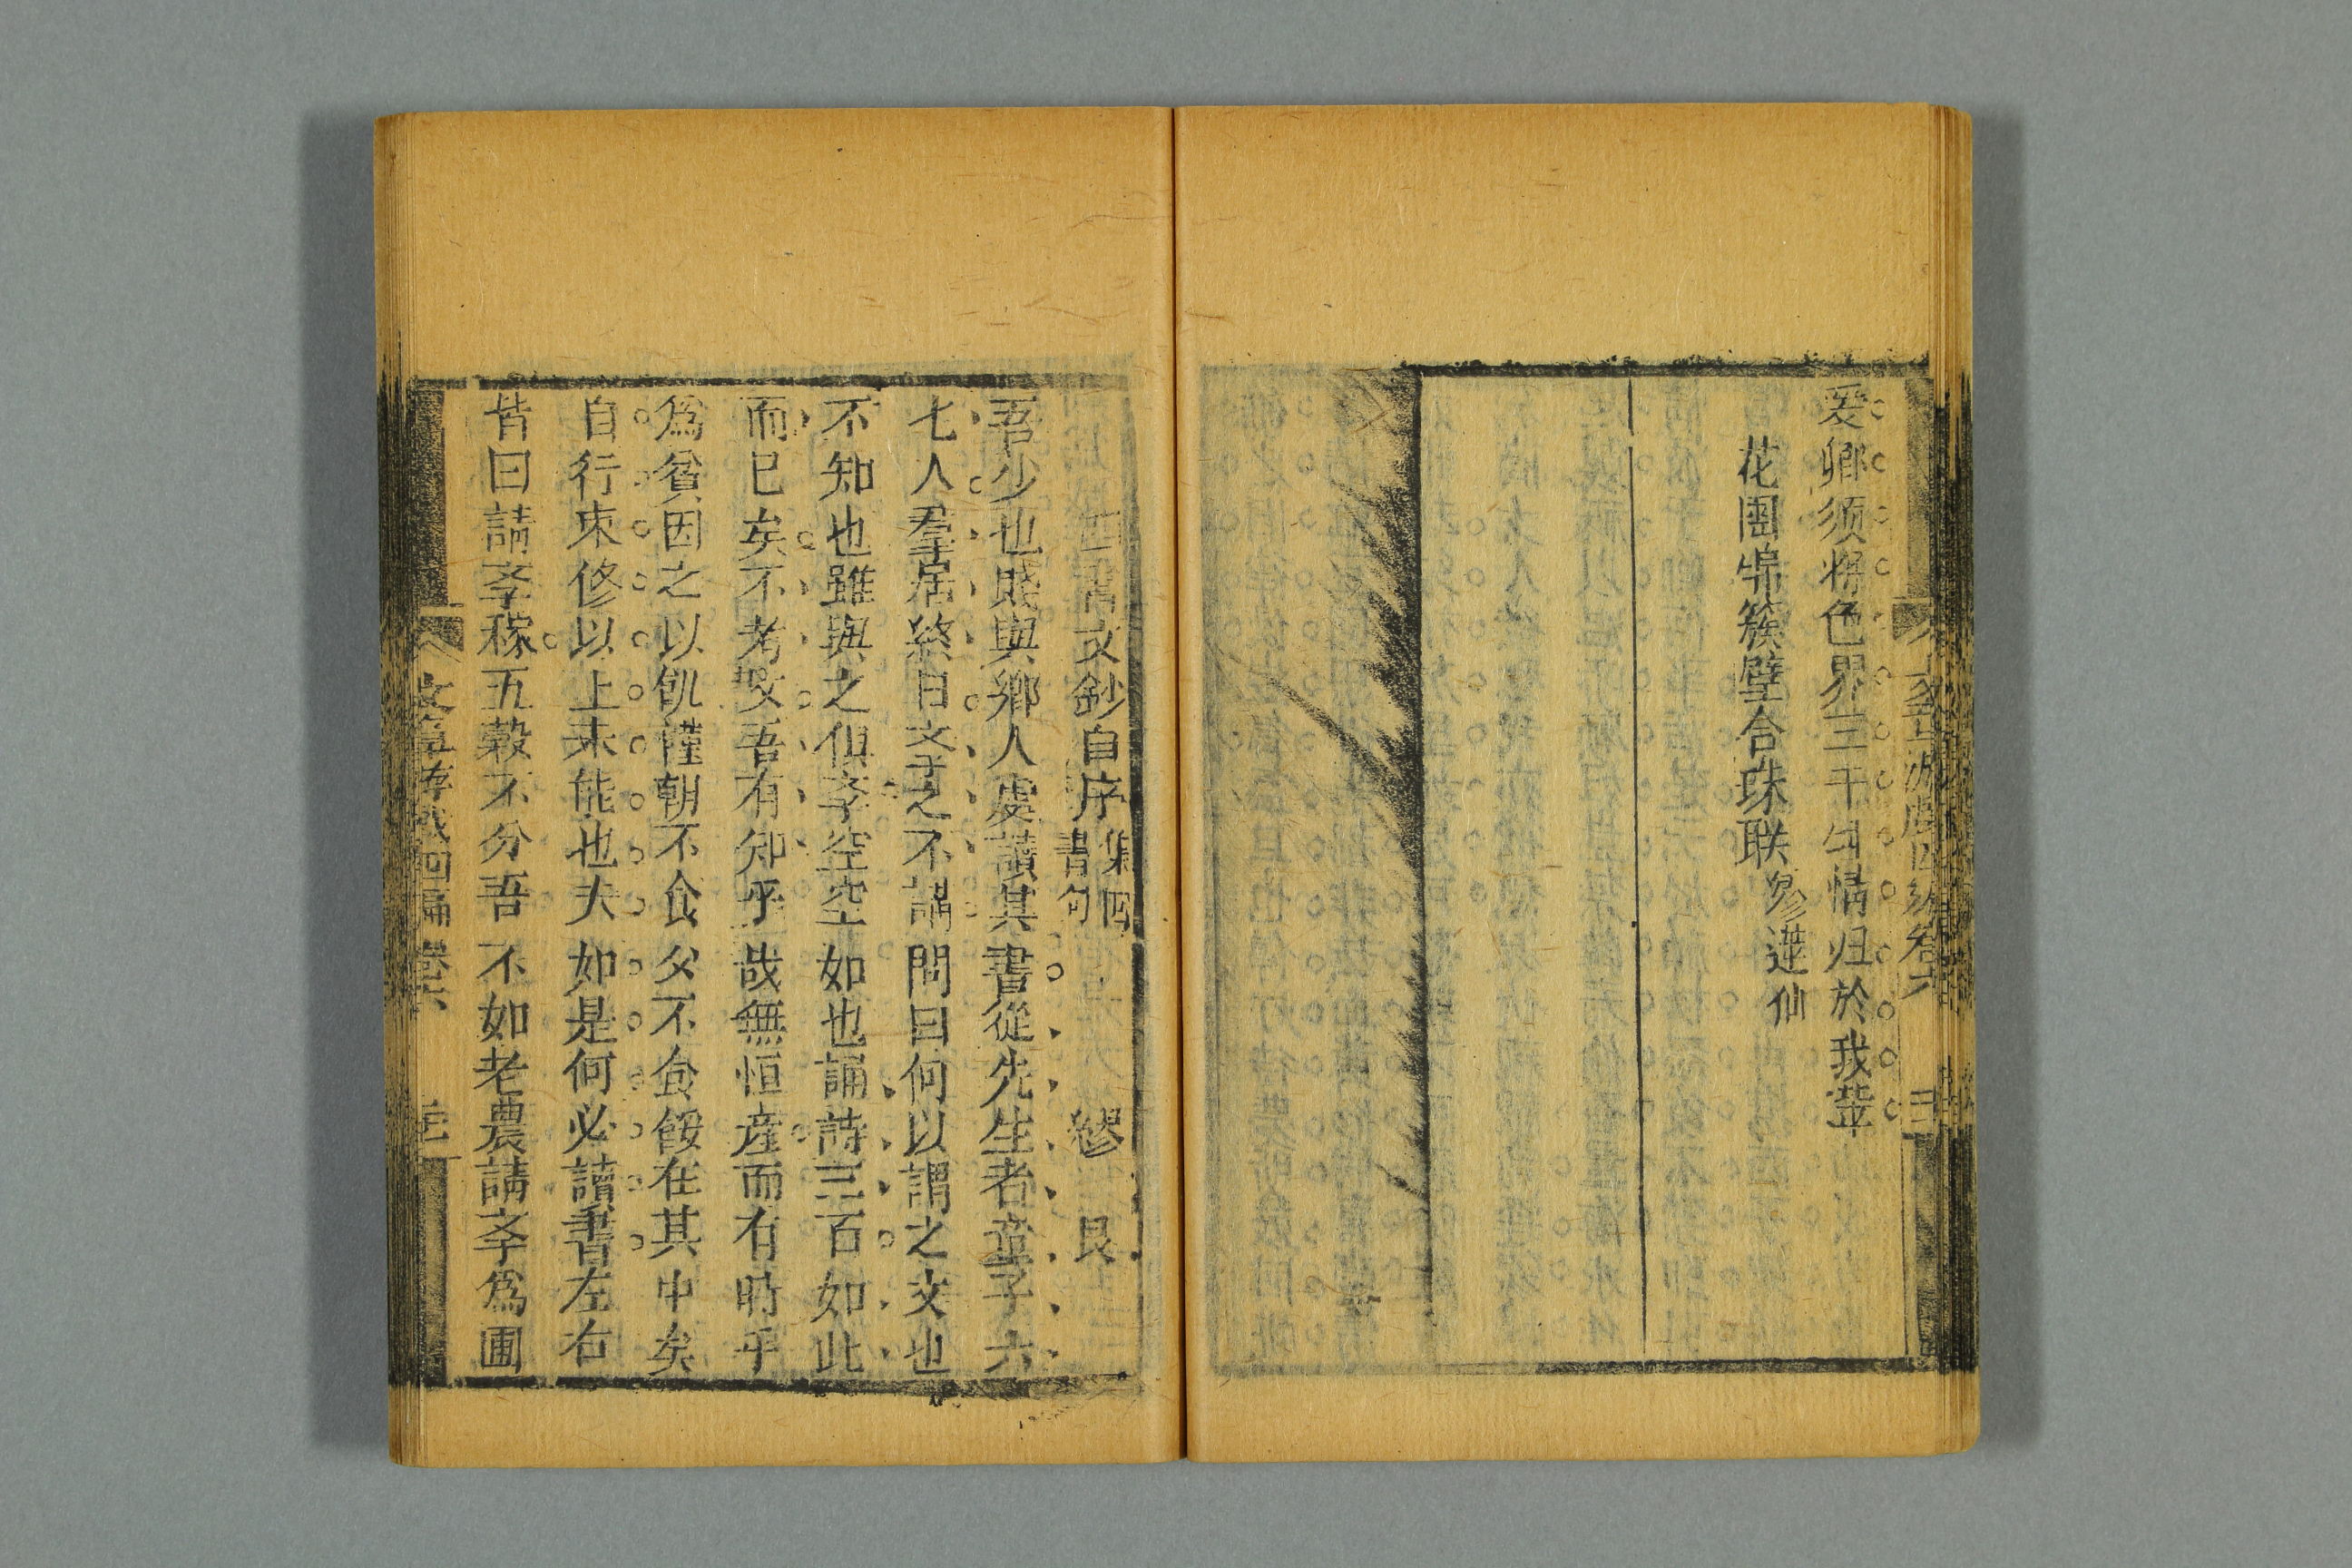 爰卿须将色界三千纠情归於我輩
花團錦簇璧合珠联 繆蓮仙
四書文鈔自序 集四書句 繆艮
吾少也賤與鄉人處讀其書從先生者童子六
七人羣居終日文予之不講問曰何以謂之文也
不知也雖與之俱斈空空如也誦詩三百如此
而已矣不考文吾有知乎哉無恒產而有時乎
為貧因之以飢饉朝不食夕不食餒在其中矣
自行束修以上未能也夫如是何必讀書左右
皆曰請斈稼五穀不分吾不如老農請斈為圃
文章游戲四編 卷六